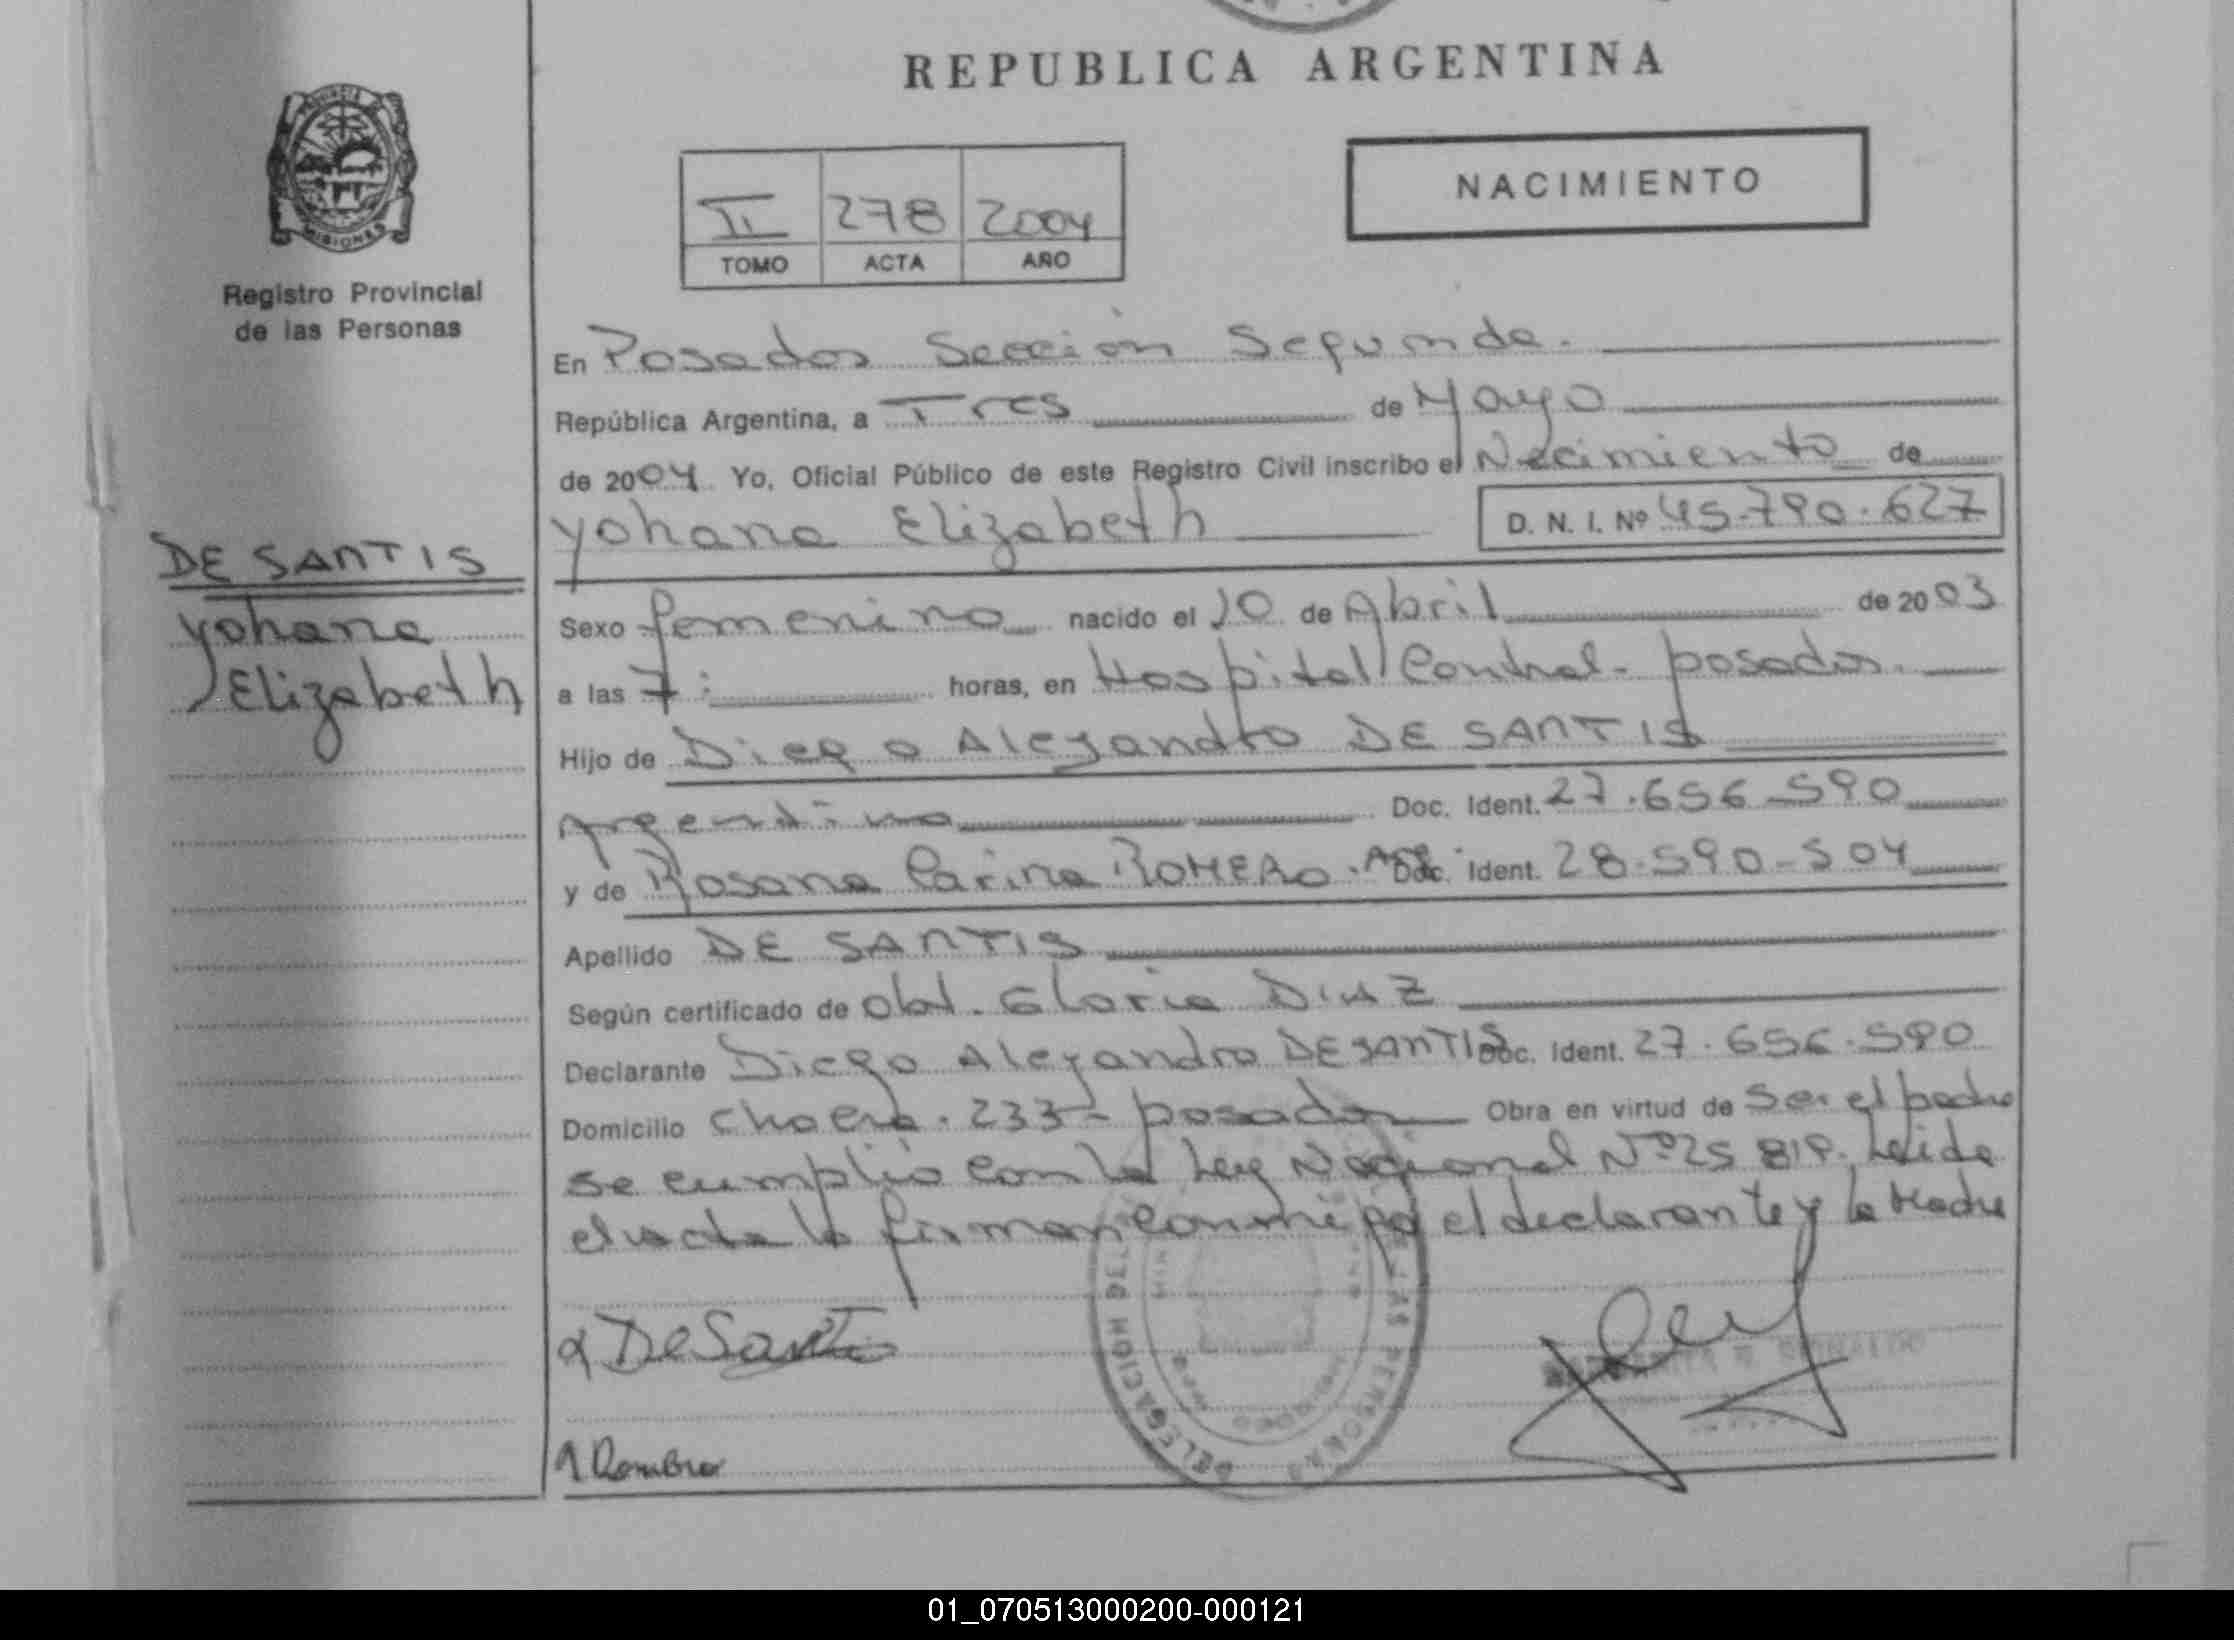 REPUBLICA ARGENTINA
PROVINCIA DE
MISIONES
Registro Provincial
de las Personas
NACIMIENTO
II 278 2004
TOMO ACTA AÑO
En Posadas Sección Segunda.
República Argentina, a Tres de Mayo
de 2004 Yo, Oficial Público de este Registro Civil inscribo el Nacimiento de
Yohana Elizabeth D. N. I. Nº 45.790.627
DE SANTIS
Yohana
Elizabeth
Sexo femenino nacido el 20 de Abril de 2003
a las 7: horas, en Hospital Central - posadas.
Hijo de Diego Alejandro DE SANTIS
Argentino Doc. Ident. 27.656.590
y de Rosana Carina ROMERO. Arg. Doc. Ident. 28.590.504
Apellido DE SANTIS
Según certificado de Obst. Gloria DIAZ
Declarante Diego Alejandro DE SANTIS Doc. Ident. 27.656.590
Domicilio 233 - posadas Obra en virtud de Ser el padre
se cumplió con la Ley Nacional Nº 25 819. Leida
el acta la firman conmigo el declarante y la Madre
DELEGACION DE LAS PERSONAS
DeSantis
01_070513000200-000121